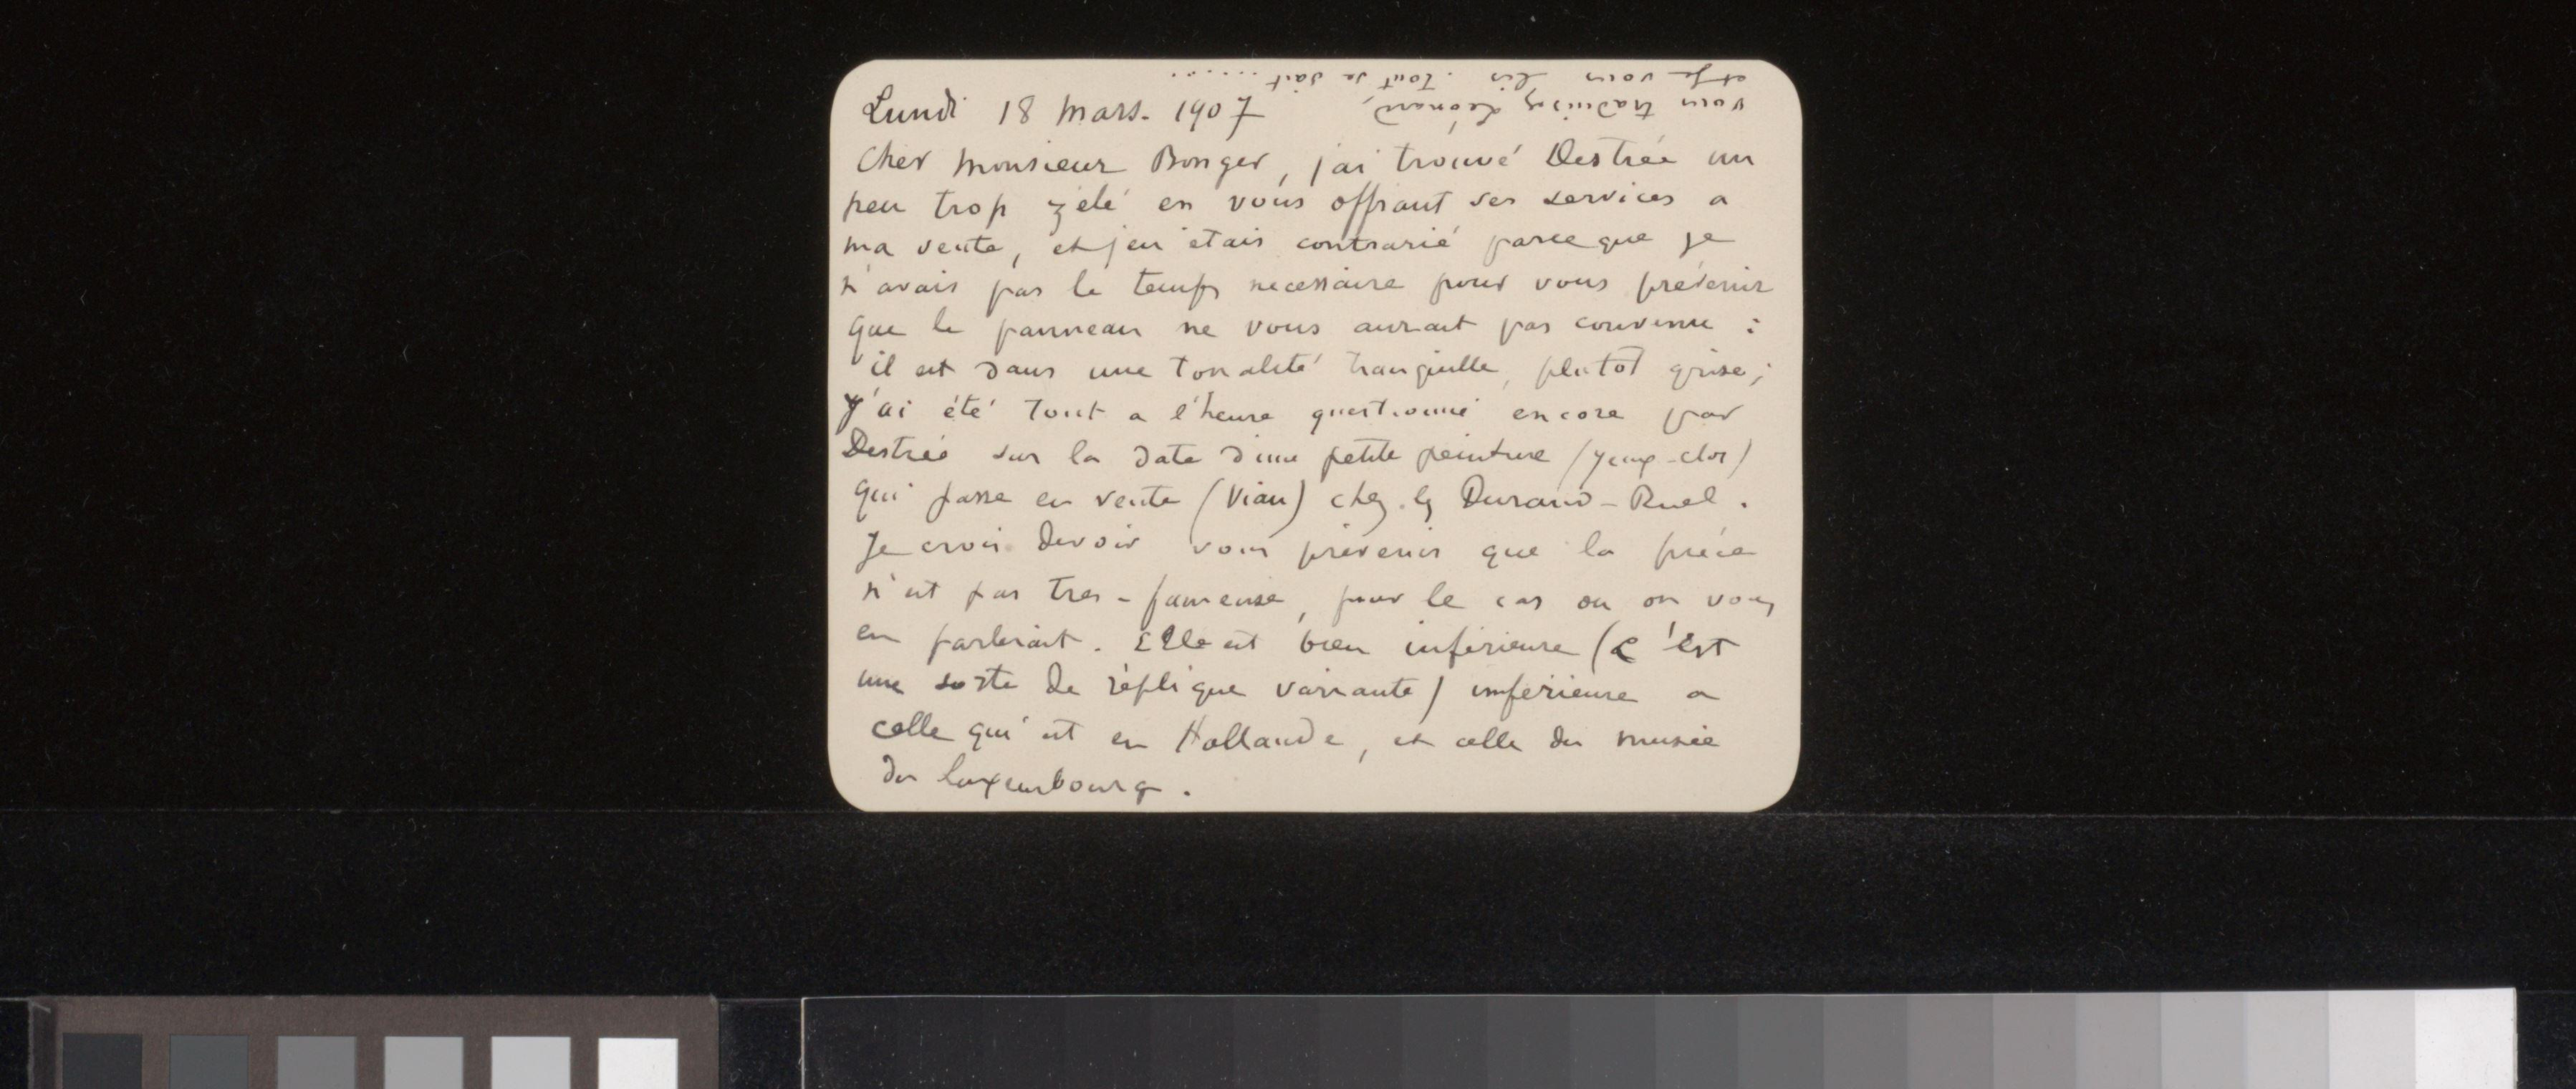 Lundi 18 Mars. 1907
Cher Monsieur Bonger, j'ai trouvé Destrée un
peu trop zélé en vous offrant ses services a
ma vente, et j'en étais contrarié parceque je
n'avais pas le temps necessaire pour vous prévenir
que le panneau ne vous aurait pas convenu :
il est dans une tonalité tranquille, plutôt grise ;
J'ai été tout a l'heure questionné encore par
Destrée sur la date d'une petite peinture (yeux-clos)
qui passe en vente (Viau) chez les Durand-Ruel.
Je crois devoir vous prévenir que la pièce
n'est pas tres-fameuse, pour le cas ou on vous
en parlerait. Elle est bien inférieure (c'est
une sorte de réplique variante) inférieure a
celle qui est en Hollande, et celle du musée
du luxembourg.
vous traduisez Léonard,
et je vous lis. Tout se sait ......